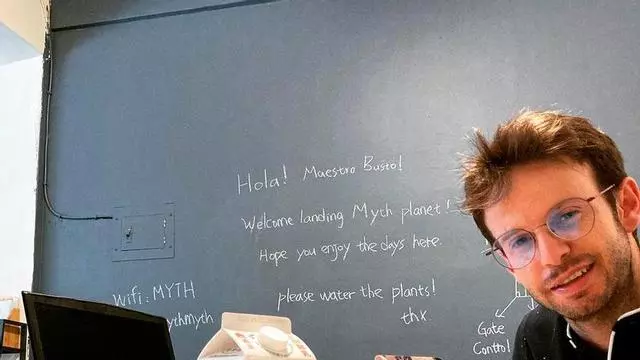 Hola! Maestro Busto!
Welcome landing Myth planet!
Hope you enjoy the days here.
Wifi: MYTH
ythmyth
please water the plants!
thx.
Gate
Control